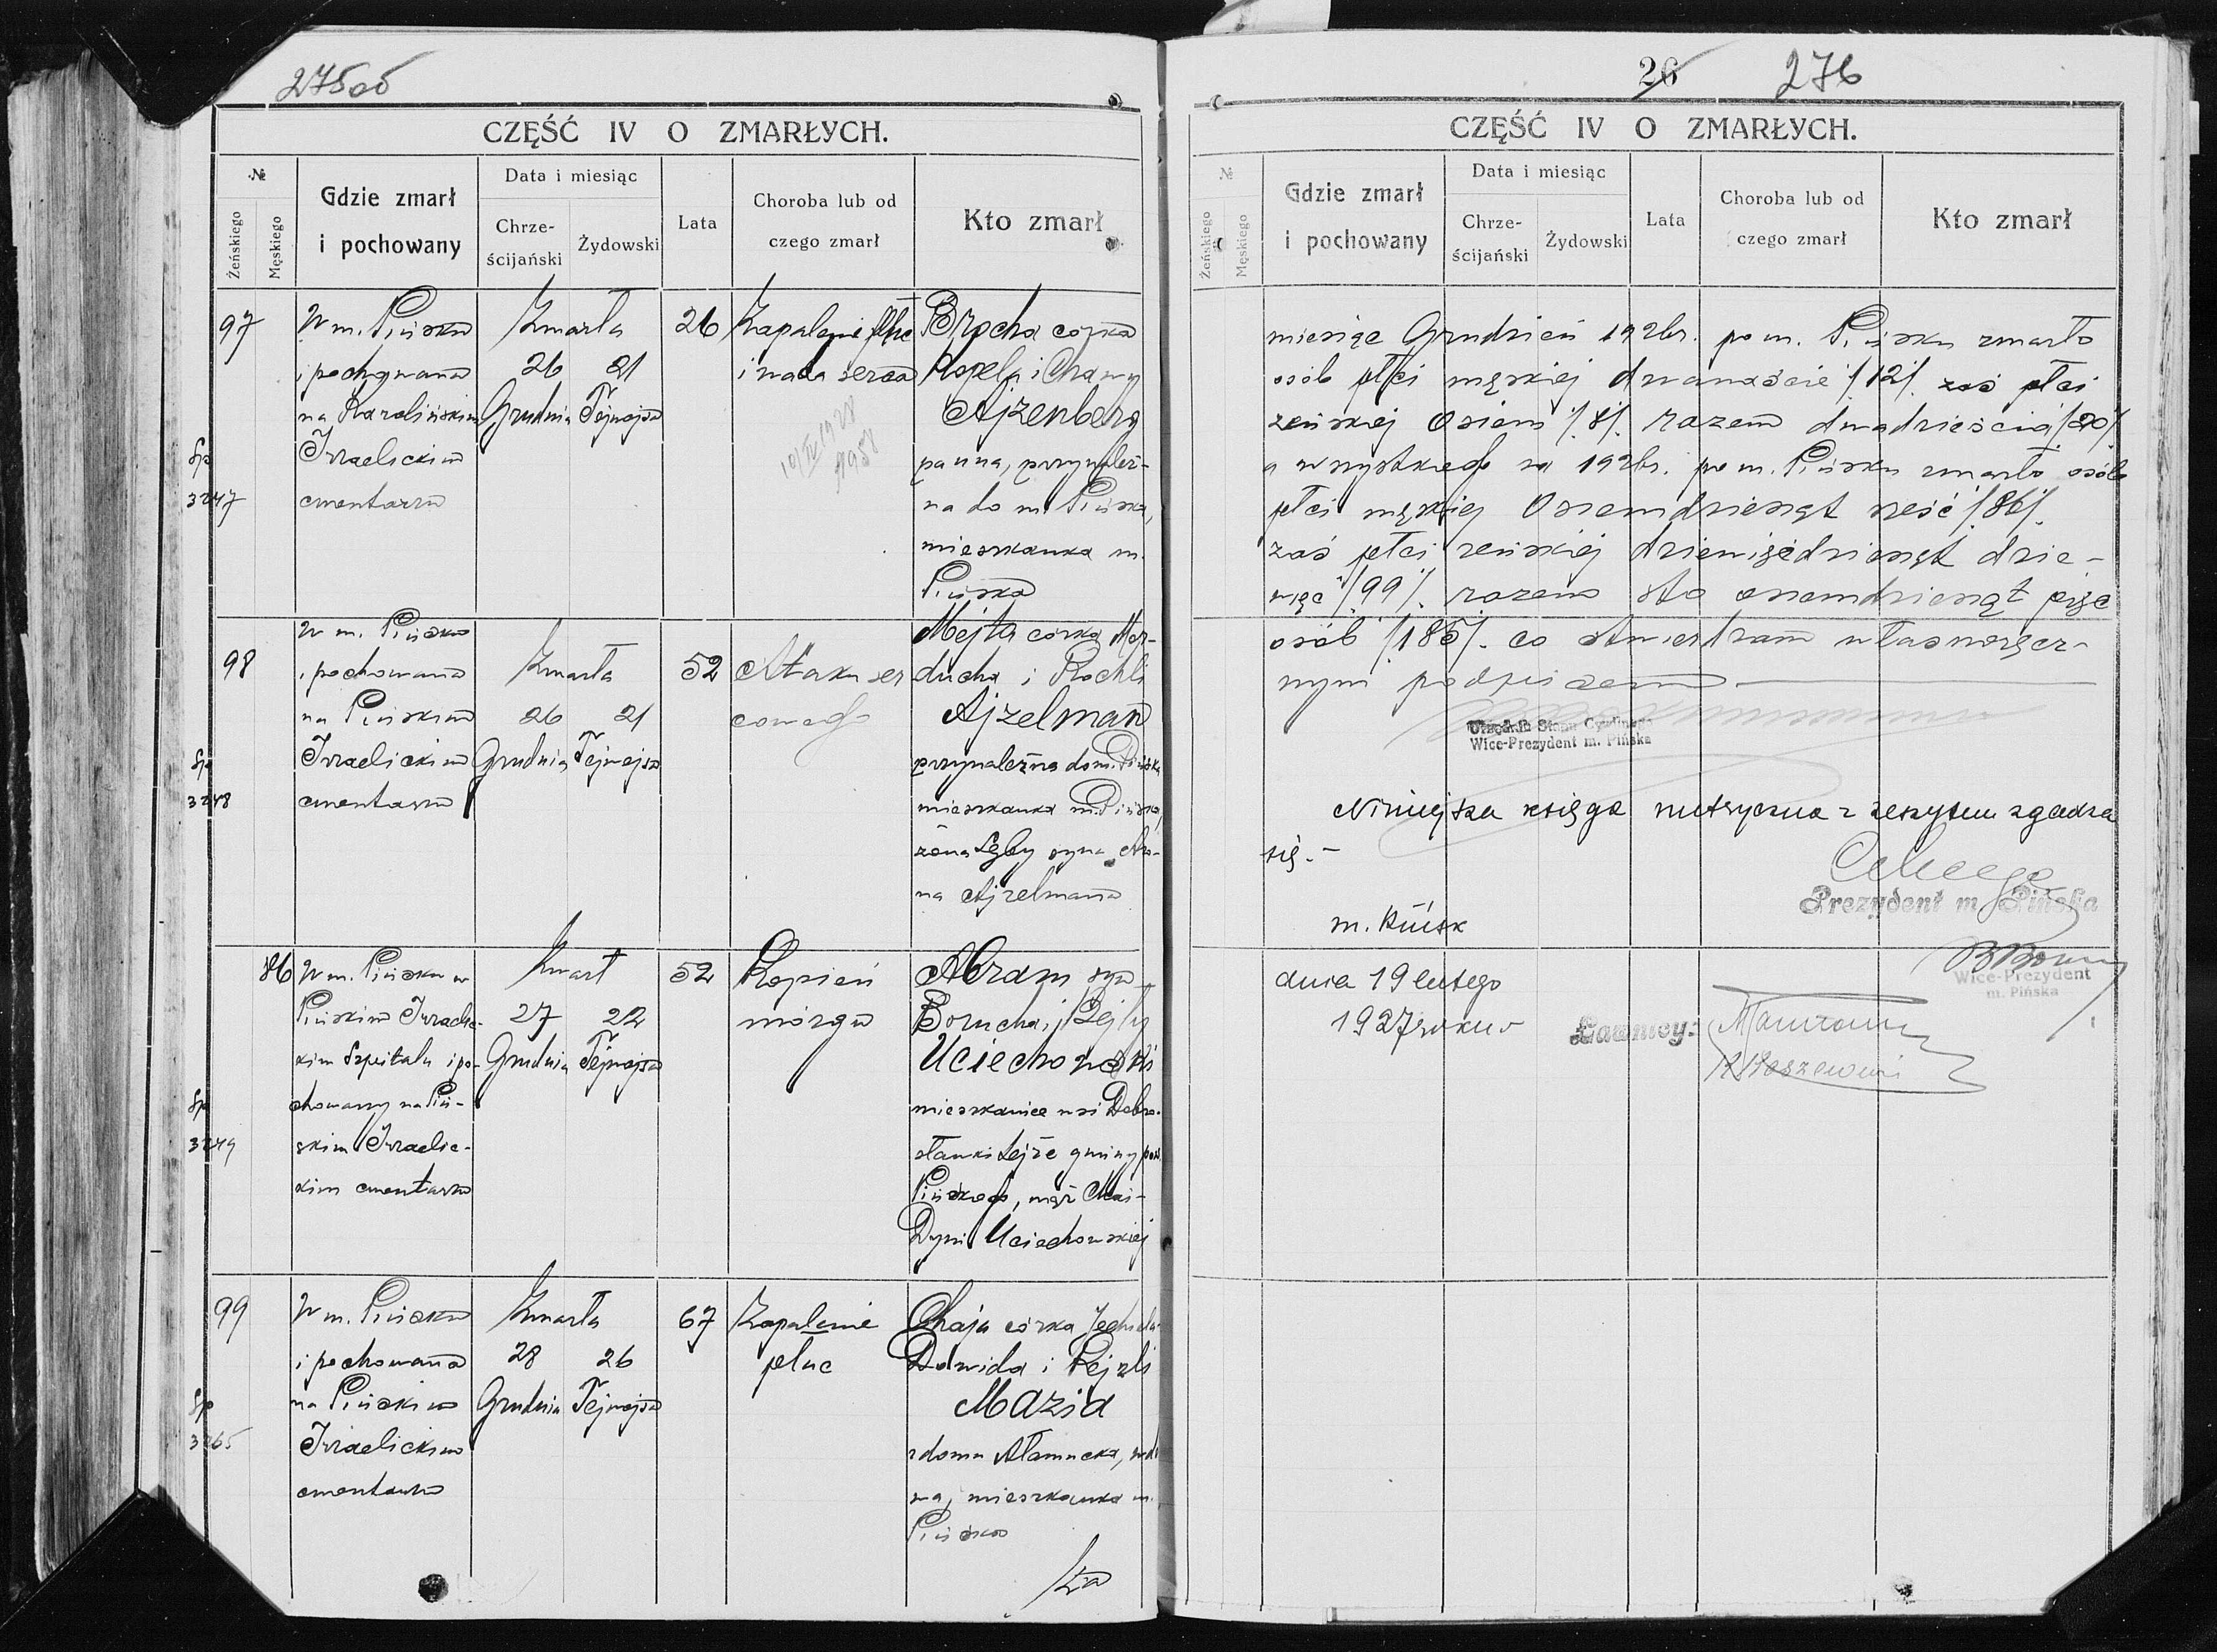 275об
CZĘŚĆ IV O ZMARŁYCH.
№
Żeńskiego
Męskiego
Gdzie zmarł
i pochowany
Data i miesiąc
Chrze-
ścijański
Żydowski
Lata
Choroba lub od
czego zmarł
Kto zmarł
97
W m. Pińsku
i pochowana
na Karolińskim
Izraelickim
cmentarzu
Sp
3247
Zmarła
26 21
Grudnia Tejwejsa
26
Zapalenie płuc
i wada serca
10/IV 1928
Brocha córka
Kopela i Chawy
Ajzenberg
panna, przynależ-
na do m. Pińska,
mieszkanka m.
Pińska
98
W m. Pińsku
i pochowana
na Pińskim
Izraelickim
cmentarzu
Sp
3248
Zmarła
26 21
Grudnia Tejwejsa
52
Ataku ser
cowego
Mejta córka Mor-
ducha i Rochli
Ajzelman
przynależna do m. Pińska
mieszkanka m. Pińska,
żona Lejby syna Aro-
na Ajzelmana
86
W m. Pińsku w
Pińskim Izraelic-
kim Szpitalu i po-
chowany na Piń-
skim Izraelic-
kim cmentarzu
Sp
3249
Zmarł
27 22
Grudnia Tejwejsa
52
Ropień
mózgu
Abram syn
Borucha i Lejby
Uciechowski
mieszkaniec wsi Dobro-
sławki tejże gminy pow.
Pińskiego, mąż
Dyni Uciechowskiej
99
W m. Pińsku
i pochowana
na Pińskim
Izraelickim
cmentarzu
Sp
3265
Zmarła
28 26
Grudnia Tejwejsa
67
Zapalenie
płuc
Chaja córka Jechiela
Dawida i Rejzli
Mazia
z domu Ałamucka, wdo
wa, mieszkanka m.
Pińska
Za
26 276
CZĘŚĆ IV O ZMARŁYCH.
№
Żeńskiego
Męskiego
Gdzie zmarł
i pochowany
Data i miesiąc
Chrze-
ścijański
Żydowski
Lata
Choroba lub od
czego zmarł
Kto zmarł
miesiąc Grudzień 1926r. po m. Pińsku zmarło
osób płci męskiej dwanaście /12/. zaś płci
żeńskiej osiem /8/. razem dwadzieścia /20/
a wszystkiego za 1926r. po m. Pińsku zmarło osób
płci męskiej Osiemdziesiąt sześć /86/.
zaś płci żeńskiej dziewięćdziesiąt dzie-
więć /99/. razem sto osiemdziesiąt pięć
osób /185/. co stwierdzam własnoręcz-
nym podpisem
Urzędnik Stanu Cywilnego
Wice-Prezydent m. Pińska
Niniejsza księga metryczna z zeszytem zgadza
się.-
Prezydent m. Pińska
m. Pińsk
dnia 19 lutego
1927 roku
Wice-Prezydent
m. Pińska
Ławnicy: